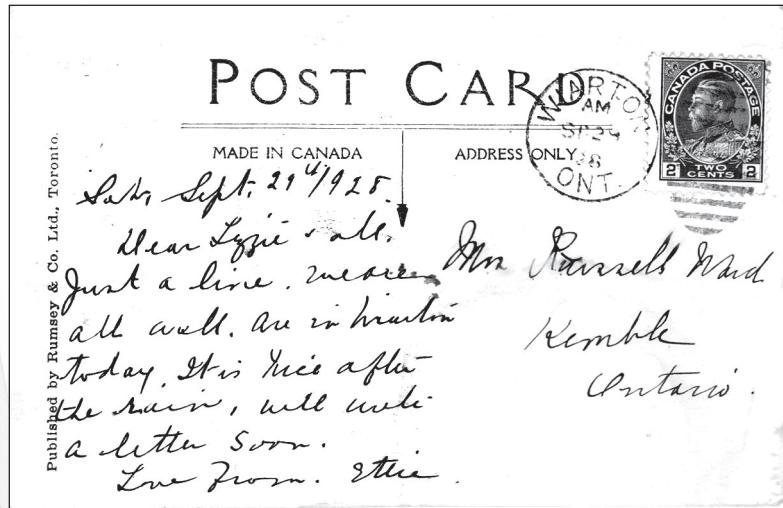 POST CARD
MADE IN CANADA
ADDRESS ONLY
WIARTON
AM
SP 29
28
ONT.
CANADA POSTAGE
2 TWO CENTS 2
Published by Rumsey & Co. Ltd., Toronto.
Sat, Sept. 29th/1928.
Dear Lizzie & all.
Just a line. we are
all well. are in Wiarton
today. It is nice after
the rain, will write
a letter soon.
Love From. Ettie.
Mrs Russell Ward
Kemble
Ontario.